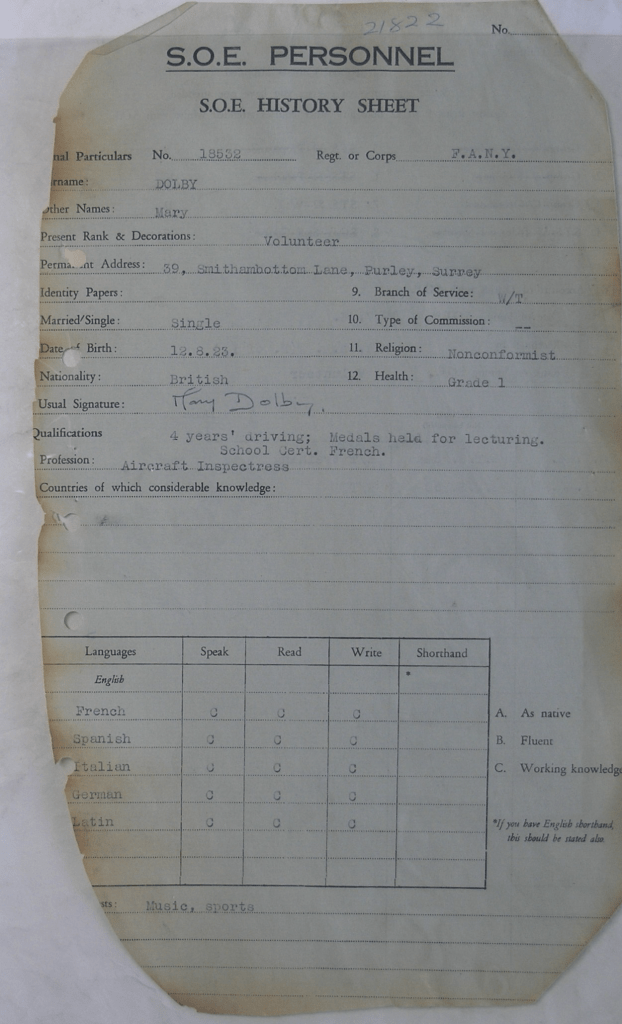 21822
No.
S.O.E. PERSONNEL
S.O.E. HISTORY SHEET
nal Particulars No. 18532 Regt. or Corps F.A.N.Y.
rname: DOLBY
ther Names: Mary
Present Rank & Decorations: Volunteer
Perma nt Address: 39, Smithambottom Lane, Purley, Surrey
Identity Papers: 9. Branch of Service: W/T
Married/Single: Single 10. Type of Commission: --
Date of Birth: 12.8.23. 11. Religion: Nonconformist
Nationality: British 12. Health: Grade 1
Usual Signature: Mary Dolby.
Qualifications 4 years' driving; Medals held for lecturing.
School Cert. French.
Profession: Aircraft Inspectress
Countries of which considerable knowledge:
Languages Speak Read Write Shorthand
English *
French C C C A. As native
Spanish C C C B. Fluent
Italian C C C C. Working knowledge
German C C C
Latin C C C *If you have English shorthand,
this should be stated also
sts: Music, sports